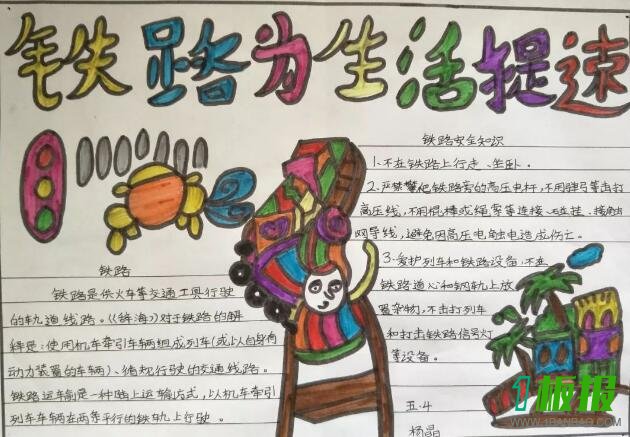 铁路为生活提速
铁路安全知识
1、不在铁路上行走、坐卧。
2、严禁攀爬铁路旁的高压电杆,不用弹弓等击打
高压线,不用棍棒或绳索等连接、吊挂、接触
网导线,避免因高压电触电造成伤亡。
3、爱护列车和铁路设备,不在
铁路道心和钢轨上放
置杂物,不击打列车
和打击铁路信号灯
等设备。
五.4
杨晶
铁路
铁路是供火车等交通工具行驶
的轨道线路。《辞海》对于铁路的解
释是:使用机车牵引车辆组成列车(或以自身有
动力装置的车辆)、循规行驶的交通线路。
铁路运车制是一种陆上运输方式,以机车牵引
列车车辆在两条平行的铁轨上行驶。
板报